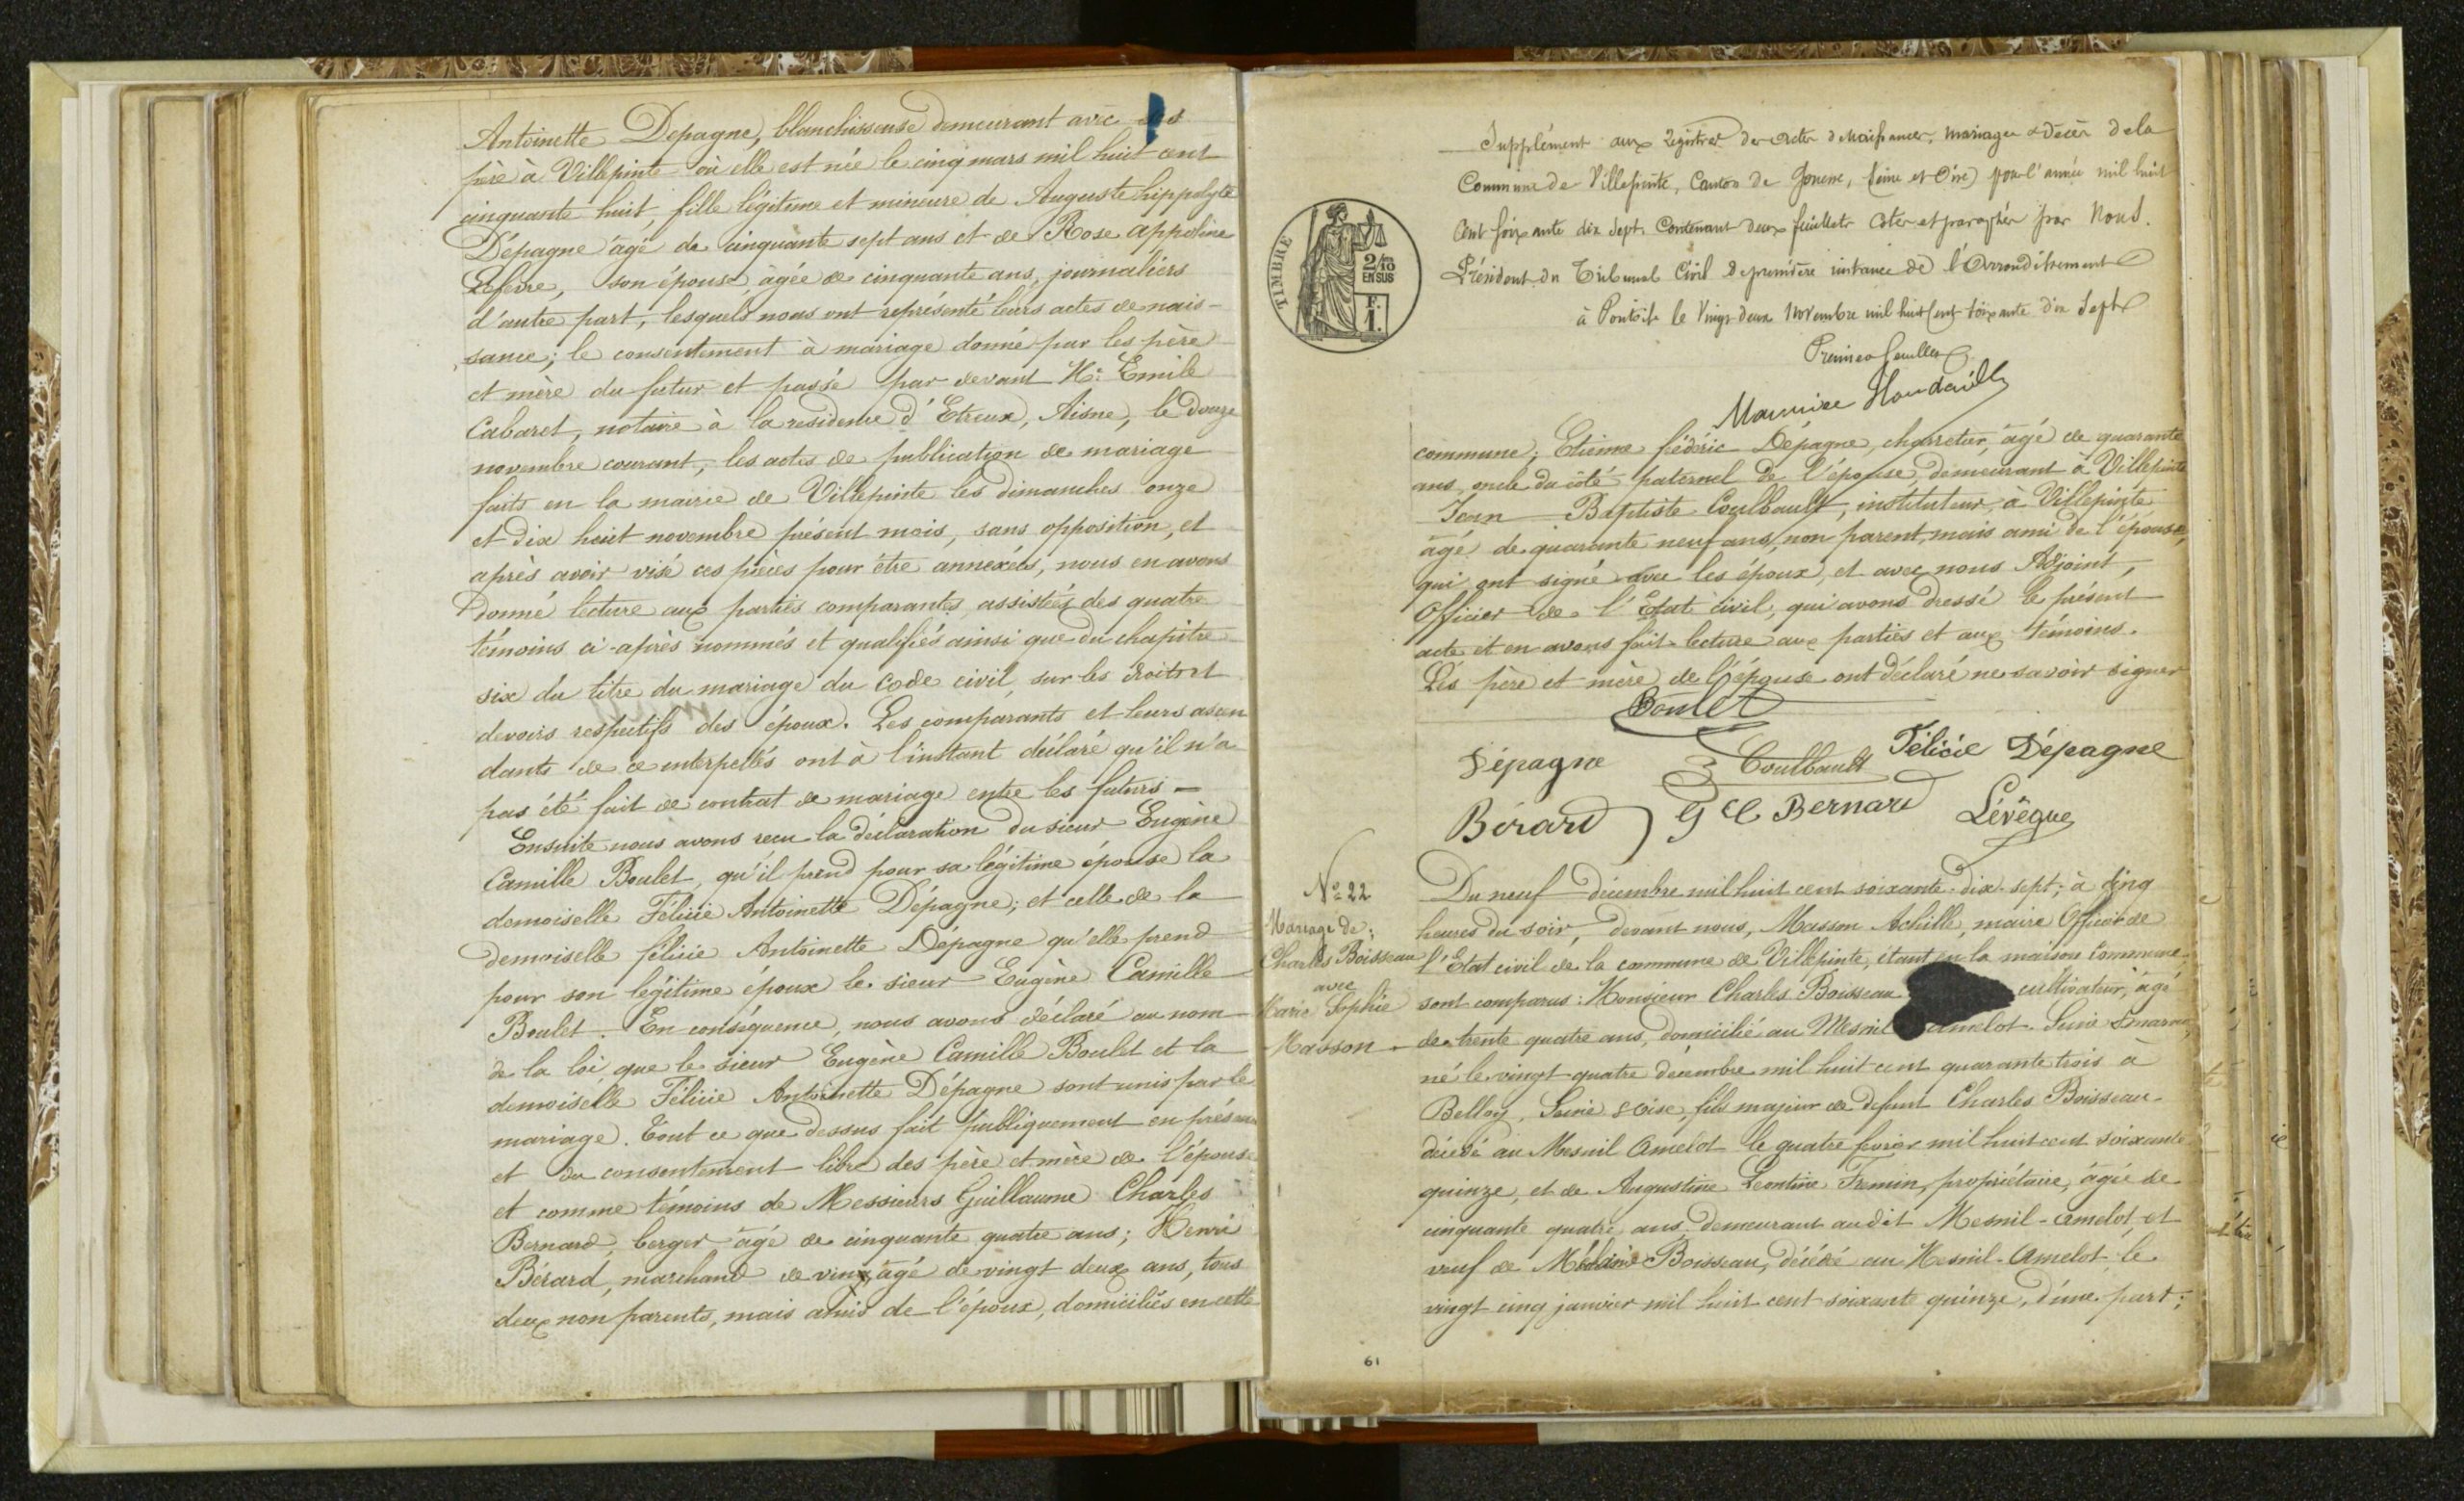 Antoinette Depagne, blanchisseuse demeurant avec ses
père à Villepinte où elle est née le cinq mars mil huit cent
cinquante huit fille légitime et mineure de Auguste hippolyte
Dépagne âgé de cinquante sept ans et de Rose appoline
Lefevre, son épouse âgée de cinquante ans, journaliers
d'autre part, lesquels nous ont représenté leurs actes de nais-
sance; le consentement à mariage donné par les père
et mère du futur et passé par devant Me Emile
Cabaret, notaire à la residence d'Etreux, Aisne, le douze
novembre courant, les actes de publication de mariage
faits en la mairie de Villepinte les dimanches onze
et dix huit novembre présent mois, sans opposition, et
après avoir visé ces pièces pour être annexées, nous en avons
donné lecture aux parties comparantes, assistées des quatre
témoins ci-après nommés et qualifiés ainsi que du chapitre
six du titre du mariage du code civil, sur les droits et
devoirs respectifs des époux. Les comparants et leurs ascen
dants de ce interpellés ont à l'instant déclaré qu'il n'a
pas été fait de contrat de mariage entre les futurs —
Ensuite nous avons recu la déclaration du sieur Eugène
Camille Boulet, qu'il prend pour sa légitime épouse la
demoiselle Félicie Antoinette Dépagne; et celle de la
demoiselle félicie Antoinette Dépagne qu'elle prend
pour son légitime époux le sieur Eugène Camille
Boulet. En conséquence, nous avons déclaré au nom
de la loi que le sieur Eugène Camille Boulet et la
demoiselle Félicie Antoinette Dépagne sont unis par le
mariage. Tout ce que dessus fait publiquement en présence
et du consentement libre des père et mère de l'épouse
et comme témoins de Messieurs Guillaume Charles
Bernard, berger âgé de cinquante quatre ans; Henri
Bérard, marchand de vins, âgé de vingt deux ans, tous
deux non parents, mais amis de l'époux, domiciliés en cette
Supplément aux registres des actes de Naissances, mariages & décès de la
Commune de Villepinte, Canton de Gonesse, (Seine et Oise) pour l'année mil huit
Cent soixante dix sept. Contenant deux feuillets cotés et paraphés par Nous.
Président du Tribunal Civil de première instance de l'Arrondissement
à Pontoise le Vingt deux Novembre mil huit cent soixante dix sept
Premier feuillet
TIMBRE
2/10
EN SUS
F.
1.
Maurice Houdaille
commune; Etienne fédéric Dépagne, charretier, âgé de quarante
ans, oncle du côté paternel de l'épouse, demeurant à Villepinte
Jean Baptiste Coulbault, instituteur, à Villepinte
âgé de quarante neuf ans, non parent, mais ami de l'épouse,
qui ont signé avec les époux, et avec nous Adjoint,
Officier de l'Etat civil, qui avons dressé le présent
acte et en avons fait lecture aux parties et aux témoins.
Les père et mère de l'épouse ont déclaré ne savoir signer
Boulet
Dépagne Coulbault Félicie Dépagne
Bérard G C Bernard Lévêque
No 22
Mariage de:
Charles Boisseau
avec
Marie Sophie
Masson
Du neuf décembre mil huit cent soixante-dix-sept; à cinq
heures du soir, devant nous, Masson Achille, maire Officier de
l'Etat civil de la commune de Villepinte, étant en la maison commune,
sont comparus: Monsieur Charles Boisseau cultivateur, âgé
de trente quatre ans, domicilié au Mesnil amelot. Seine & marne,
né le vingt quatre décembre mil huit cent quarante trois à
Belloy, Seine & oise, fils majeur de défunt Charles Boisseau
décédé au Mesnil Amelot le quatre fevrier mil huit cent soixante
quinze, et de Augustine Leontine Fremin, propriétaire, âgée de
cinquante quatre ans, demeurant audit Mesnil-amelot, et
veuf de Boisseau, décédé au Mesnil-Amelot le
vingt cinq janvier mil huit cent soixante quinze, d'une part;
61